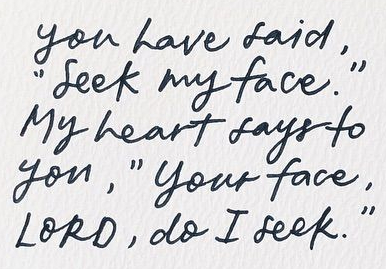 you have said,
"Seek my face."
My heart says to
you, "Your face,
LORD, do I seek."